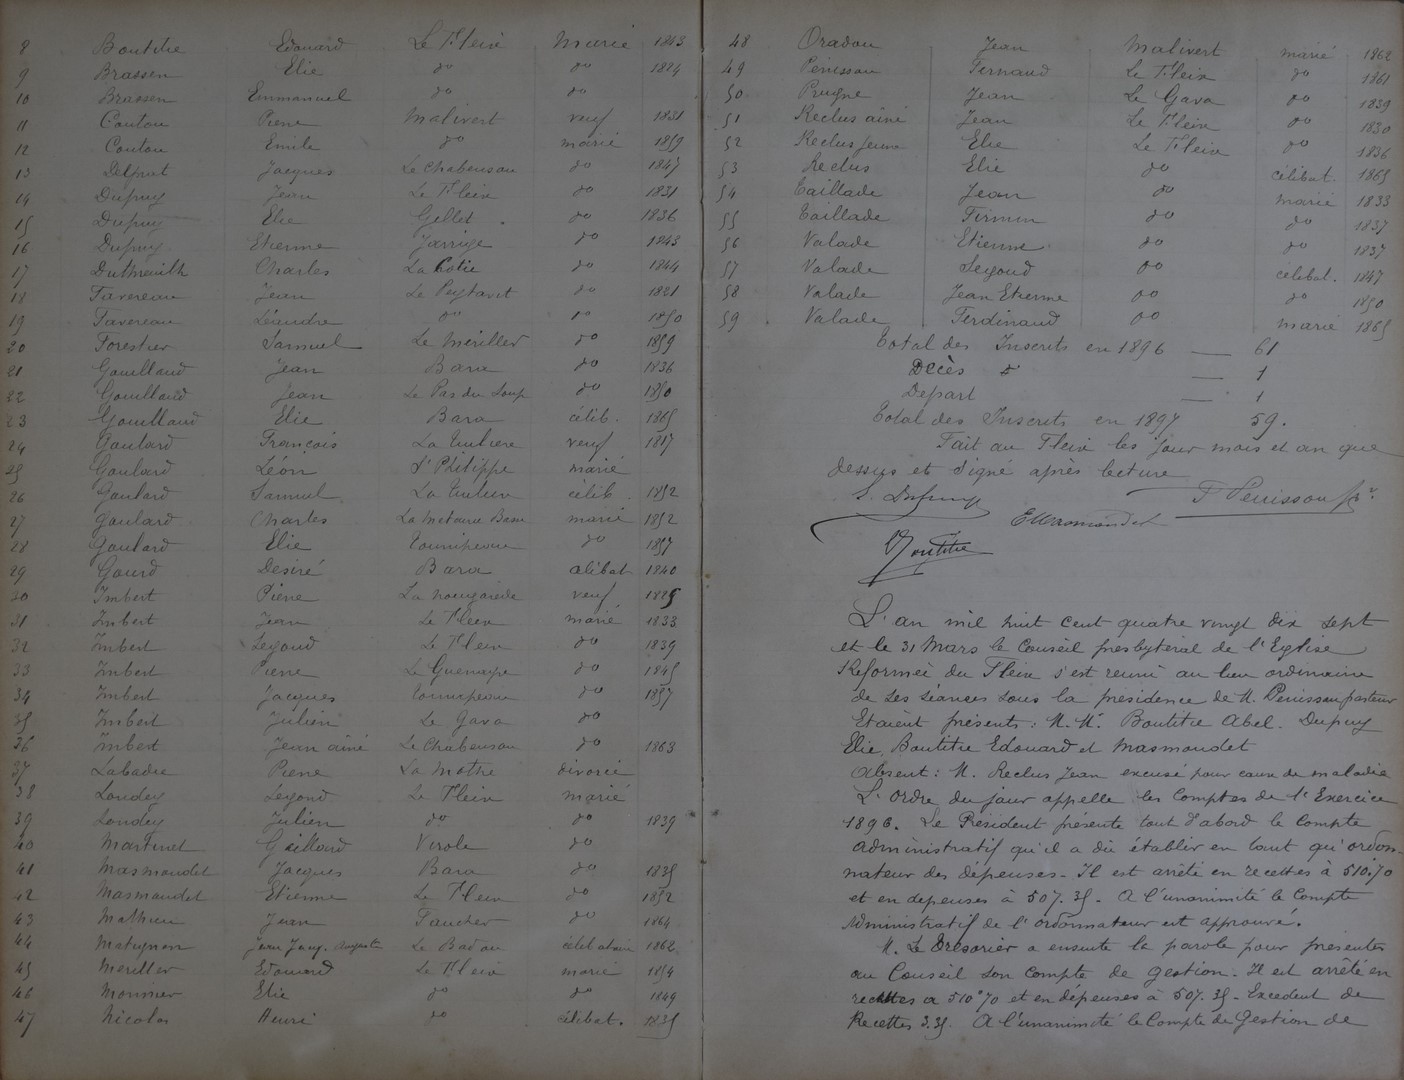 8 Boutitie Edouard Le Fleix Marié 1843
9 Brassen Elie do do 1884
10 Brassen Emmanuel do do
11 Coutou Pierre Malivert veuf 1831
12 Coutou Emile do marié 1859
13 Delprat Jacques Le Chabensou do 1847
14 Dupuy Jean Le Fleix do 1831
15 Dupuy Elie Gillet do 1836
16 Dupuy Etienne Jarrige do 1843
17 Dutheuilh Charles La Cotie do 1844
18 Favereau Jean Le Peytavit do 1821
19 Favereau Léandre do do 1850
20 Forestier Samuel Le Mériller do 1859
21 Gouilland Jean Bara do 1836
22 Gouilland Jean Le Pas du Loup do 1850
23 Gouilland Elie Bara célib. 1865
24 Goulard François La Tuilière veuf 1817
25 Goulard Léon St Philippe marié
26 Goulard Samuel La Tuilière célib. 1852
27 Goulard Charles La Métairie Basse marié 1852
28 Goulard Elie do 1857
29 Gourd Désiré Bara célibat 1840
30 Imbert Pierre veuf 1825
31 Imbert Jean Le Fleix marié 1833
32 Imbert Segond Le Fleix do 1839
33 Imbert Pierre do 1845
34 Imbert Jacques do 1857
35 Imbert Julien Le Gava do
36 Imbert Jean aîné Le Chabensou do 1863
37 Labadie Pierre La Mothe divorcé
38 Londey Segond Le Fleix marié
39 Londey Julien do do 1839
40 Martinet Gaillard Virole do
41 Masmondet Jacques Bara do 1835
42 Masmondet Etienne Le Fleix do 1852
43 Mathieu Jean Faucher do 1864
44 Matignon Jean Jacq. Auguste Le Badou célibataire 1862
45 Meriller Edouard Le Fleix marié 1854
46 Monnier Elie do do 1849
47 Nicolas Henri do célibat. 1835
48 Oradou Jean Malivert marié 1862
49 Penissou Fernand Le Fleix do 1861
50 Prugne Jean Le Gava do 1839
51 Reclus aîné Jean Le Fleix do 1830
52 Reclus jeune Elie Le Fleix do 1836
53 Reclus Elie do célibat. 1865
54 Taillade Jean do marié 1833
55 Taillade Firmin do do 1837
56 Valade Etienne do do 1837
57 Valade Segond do célibat. 1847
58 Valade Jean Etienne do do 1850
59 Valade Ferdinand do marié 1865
Total des Inscrits en 1896 — 61
Décès — 1
Départ — 1
Total des Inscrits en 1897 59.
Fait au Fleix les jour mois et an que
dessus et signé après lecture
E. Dupuy F Penissou pr
E Masmondet
Boutitie
L'an mil huit cent quatre vingt dix sept
et le 31 Mars le Conseil presbytéral de l'Eglise
Réformée du Fleix s'est réuni au lieu ordinaire
de ses séances sous la présidence de M. Penissou pasteur
Etaient présents : M. M. Boutitie Abel. Dupuy
Elie, Boutitie Edouard et Masmondet
Absent : M. Reclus Jean excusé pour cause de maladie
L'ordre du jour appelle les Comptes de l'Exercice
1896. Le Président présente tout d'abord le Compte
administratif qu'il a dû établir en tant qu'ordon-
nateur des dépenses - Il est arrêté en recettes à 510.70
et en dépenses à 507.35 - A l'unanimité le Compte
Administratif de l'ordonnateur est approuvé.
M. Le Trésorier a ensuite la parole pour présenter
au Conseil son compte de gestion. Il est arrêté en
recettes à 510.70 et en dépenses à 507.35 - Excédent de
Recettes 3.35 A l'unanimité le Compte de Gestion de